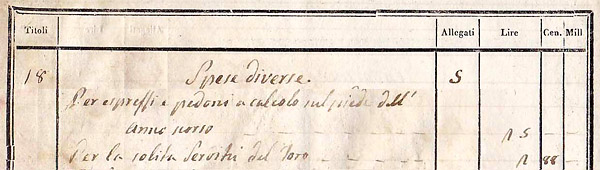 Titoli Allegati Lire Cen. Mill
18 Spese diverse. S
Per espressi e pedoni a calcolo sul piede dell'
anno scorso 15
Per la solita Servitù del Toro 1 88